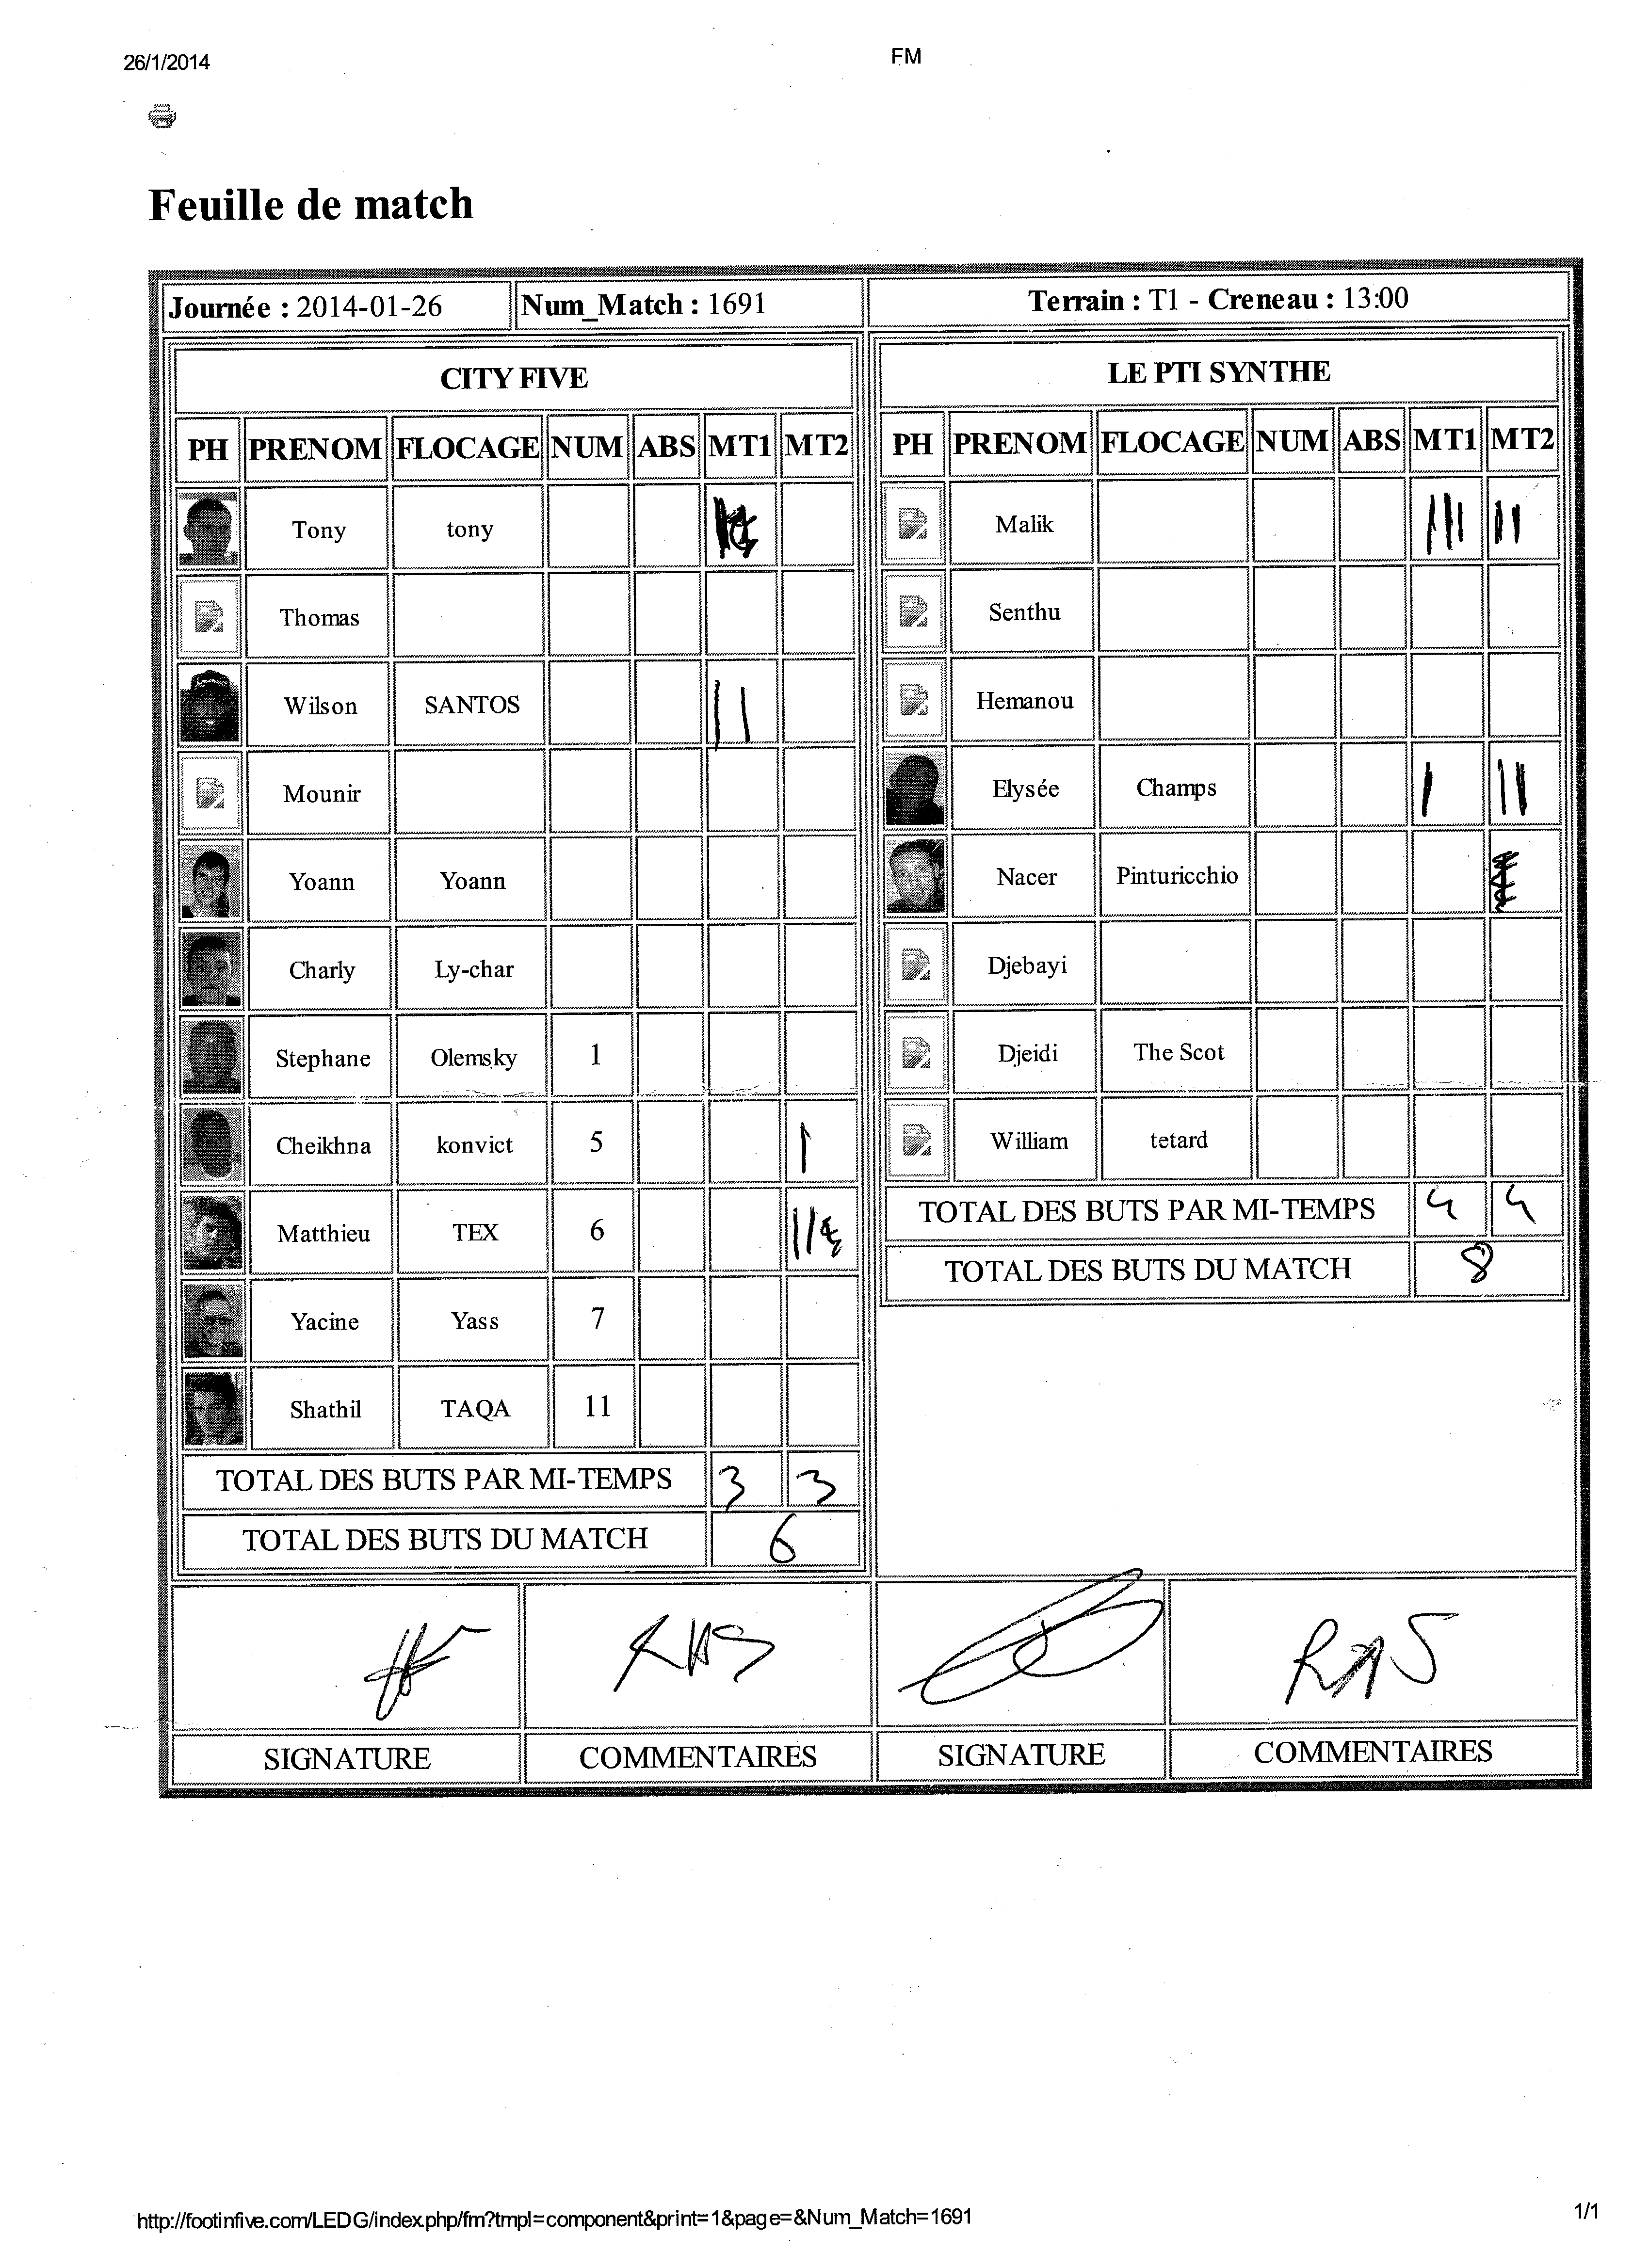 26/1/2014
FM
Feuille de match
Journée : 2014-01-26
Num_Match : 1691
Terrain : T1 - Creneau : 13:00
CITY FIVE
PH PRENOM FLOCAGE NUM ABS MT1 MT2
Tony tony
Thomas
Wilson SANTOS ||
Mounir
Yoann Yoann
Charly Ly-char
Stephane Olemsky 1
Cheikhna konvict 5 |
Matthieu TEX 6 ||
Yacine Yass 7
Shathil TAQA 11
TOTAL DES BUTS PAR MI-TEMPS 3 3
TOTAL DES BUTS DU MATCH 6
LE PTI SYNTHE
PH PRENOM FLOCAGE NUM ABS MT1 MT2
Malik ||| ||
Senthu
Hemanou
Elysée Champs | ||
Nacer Pinturicchio
Djebayi
Djeidi The Scot
William tetard
TOTAL DES BUTS PAR MI-TEMPS 4 4
TOTAL DES BUTS DU MATCH 8
RAS
RAS
SIGNATURE COMMENTAIRES SIGNATURE COMMENTAIRES
http://footinfive.com/LEDG/index.php/fm?tmpl=component&print=1&page=&Num_Match=1691
1/1